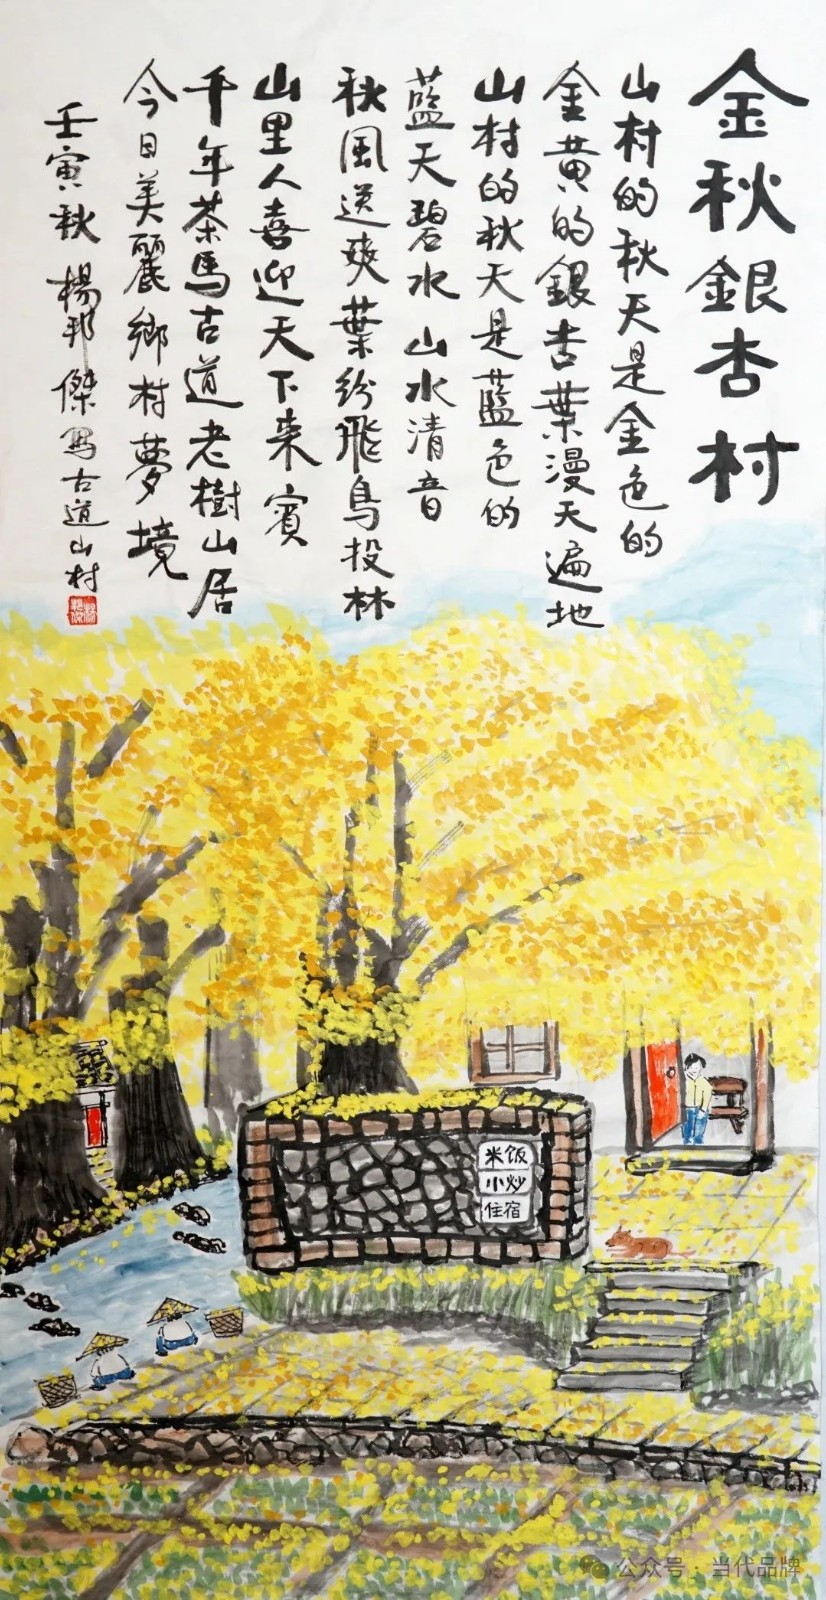 金秋銀杏村
山村的秋天是金色的
金黄的銀杏葉漫天遍地
山村的秋天是藍色的
藍天碧水山水清音
秋風送爽葉紛飛鳥投林
山里人喜迎天下来賓
千年茶馬古道老樹山居
今日美麗鄉村夢境
壬寅秋 楊邦傑寫古道山村
米饭
小炒
住宿
公众号·当代品牌